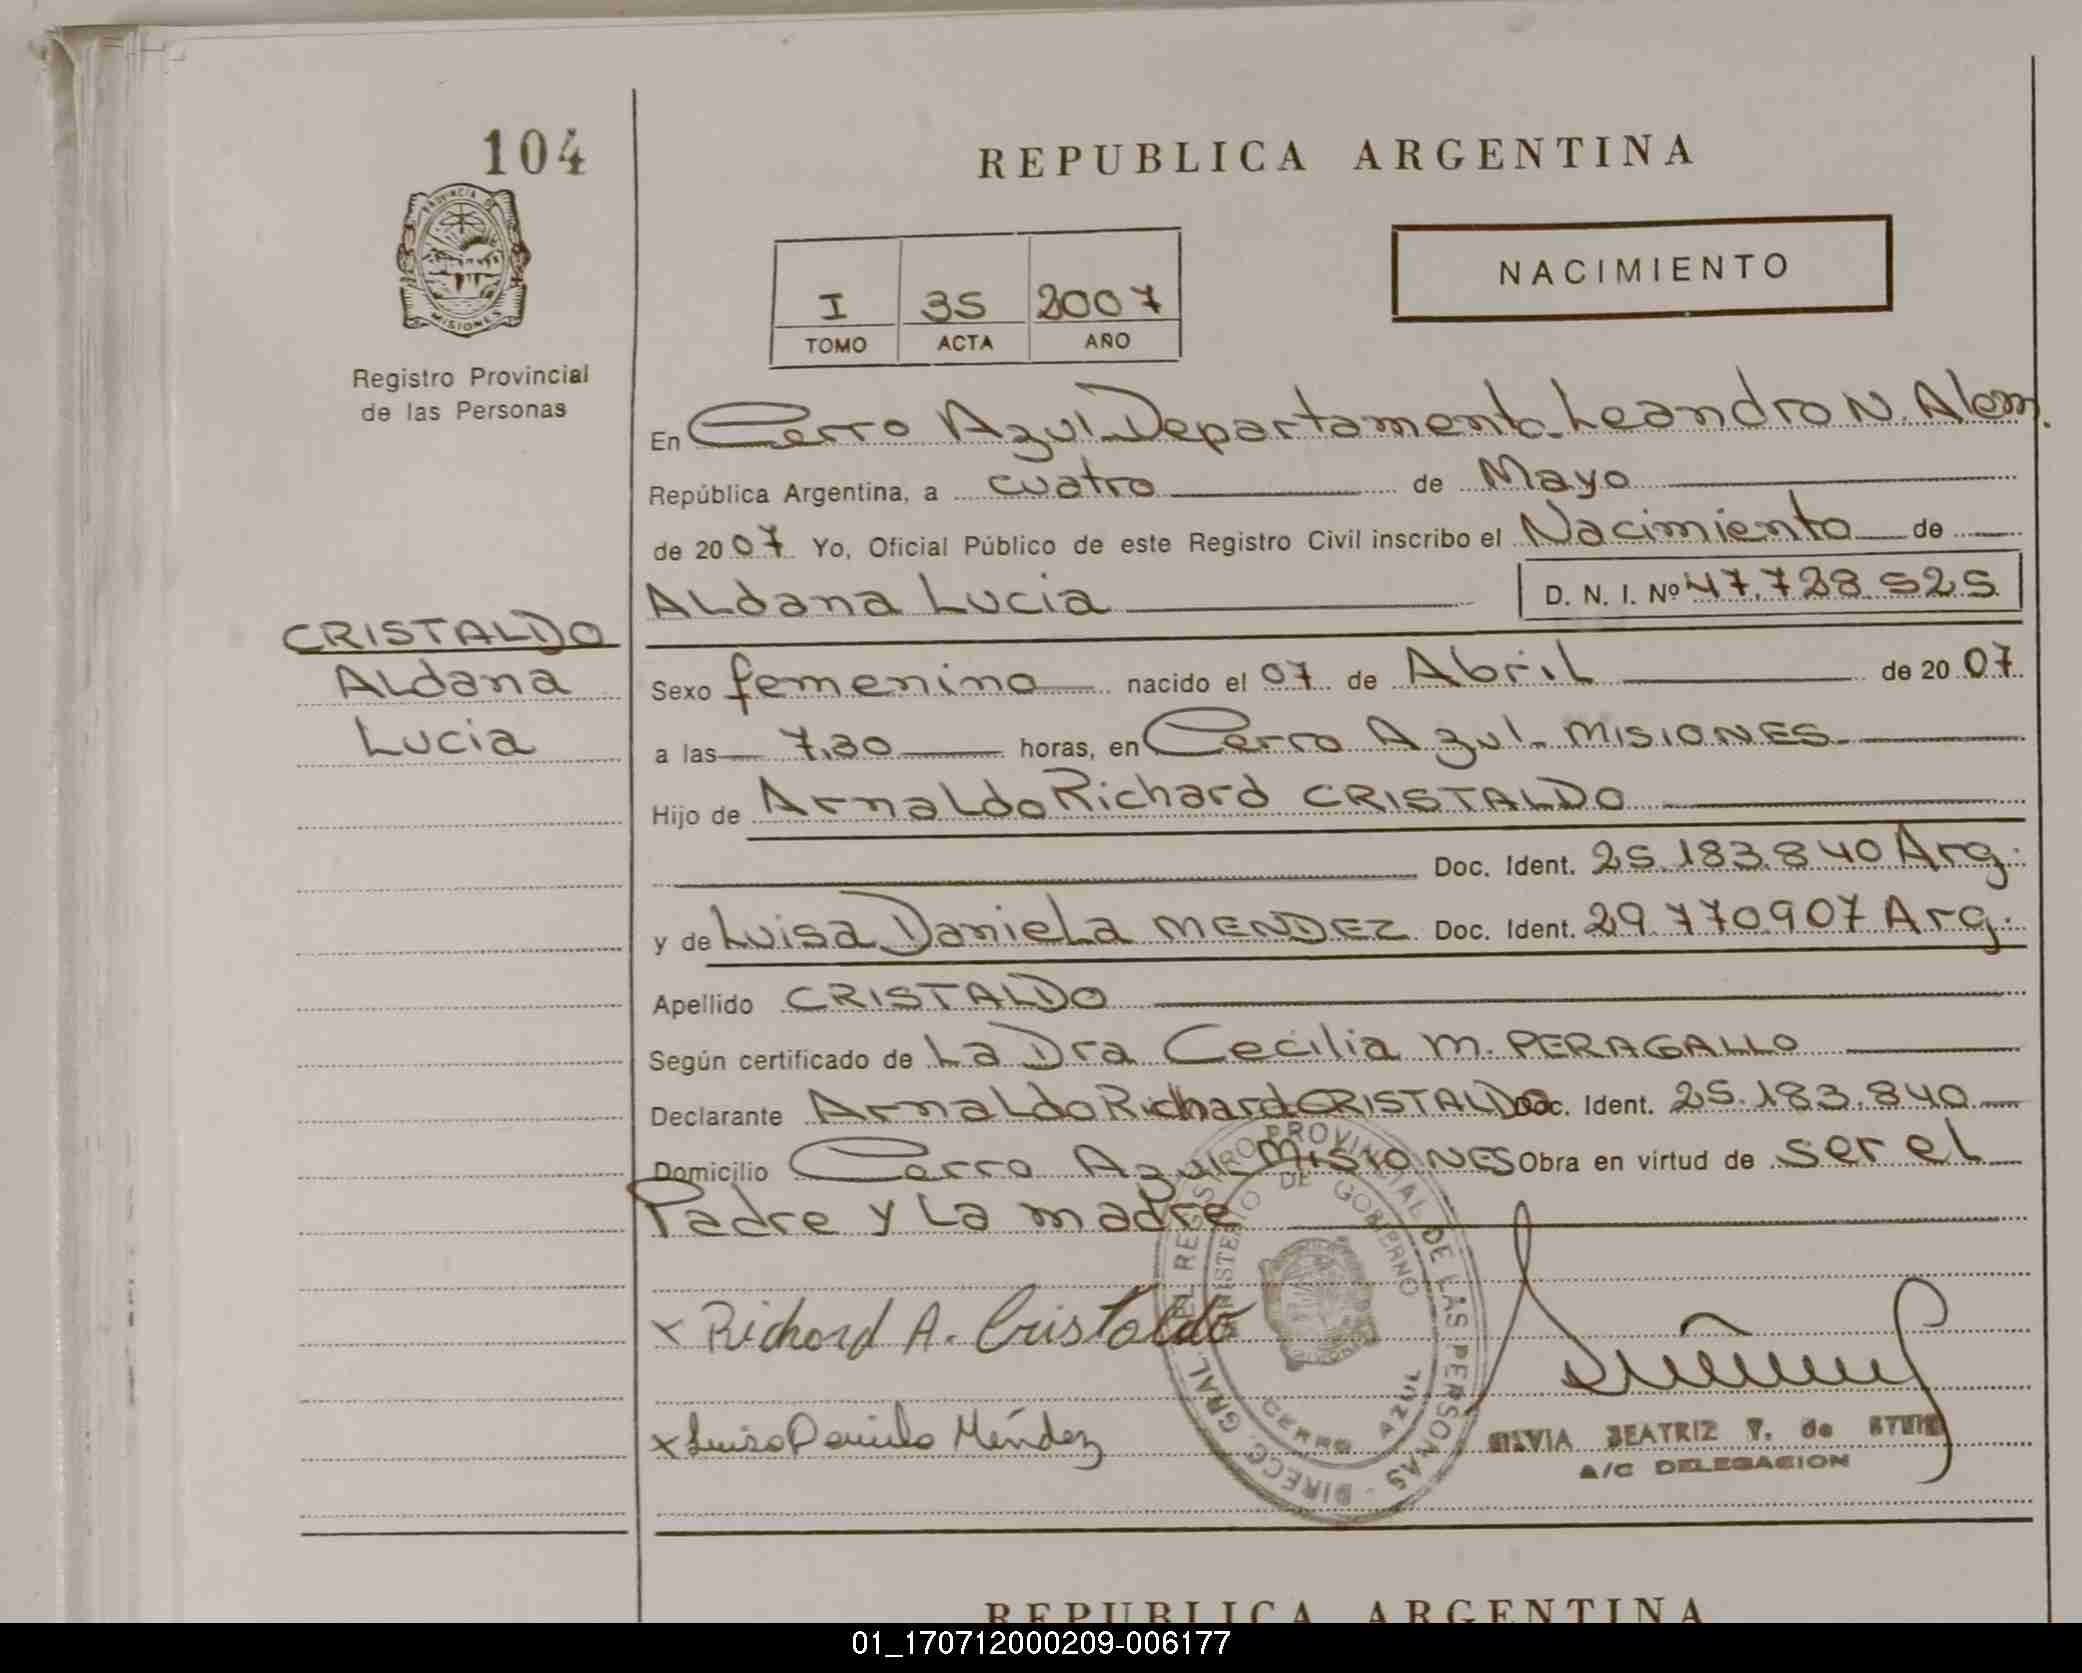 104
REPUBLICA ARGENTINA
PROVINCIA DE
MISIONES
NACIMIENTO
I 35 2007
TOMO ACTA AÑO
Registro Provincial
de las Personas
En Cerro Azul Departamento Leandro N. Alem.
República Argentina, a cuatro de Mayo
de 2007 Yo, Oficial Público de este Registro Civil inscribo el Nacimiento de
ALdana Lucia D. N. I. Nº 47.728.525
CRISTALDO
ALdana
Lucia
Sexo femenino nacido el 07 de Abril de 2007
a las 7,30 horas, en Cerro Azul MISIONES
Hijo de Arnaldo Richard CRISTALDO
Doc. Ident. 25.183.840 Arg.
y de Luisa Daniela MENDEZ Doc. Ident. 29.770.907 Arg.
Apellido CRISTALDO
Según certificado de La Dra Cecilia M. PERAGALLO
Declarante Arnaldo Richard CRISTALDO Doc. Ident. 25.183.840
Domicilio Cerro Azul MISIONES Obra en virtud de ser el
Padre y La madre
x Richard A. Cristaldo
x Luisa Daniela Méndez
DIRECC. GRAL. DEL REGISTRO PROVINCIAL DE LAS PERSONAS
MINISTERIO DE GOBIERNO
CERRO AZUL
SILVIA BEATRIZ V. de
A/C DELEGACION
REPUBLICA ARGENTINA
01_170712000209-006177